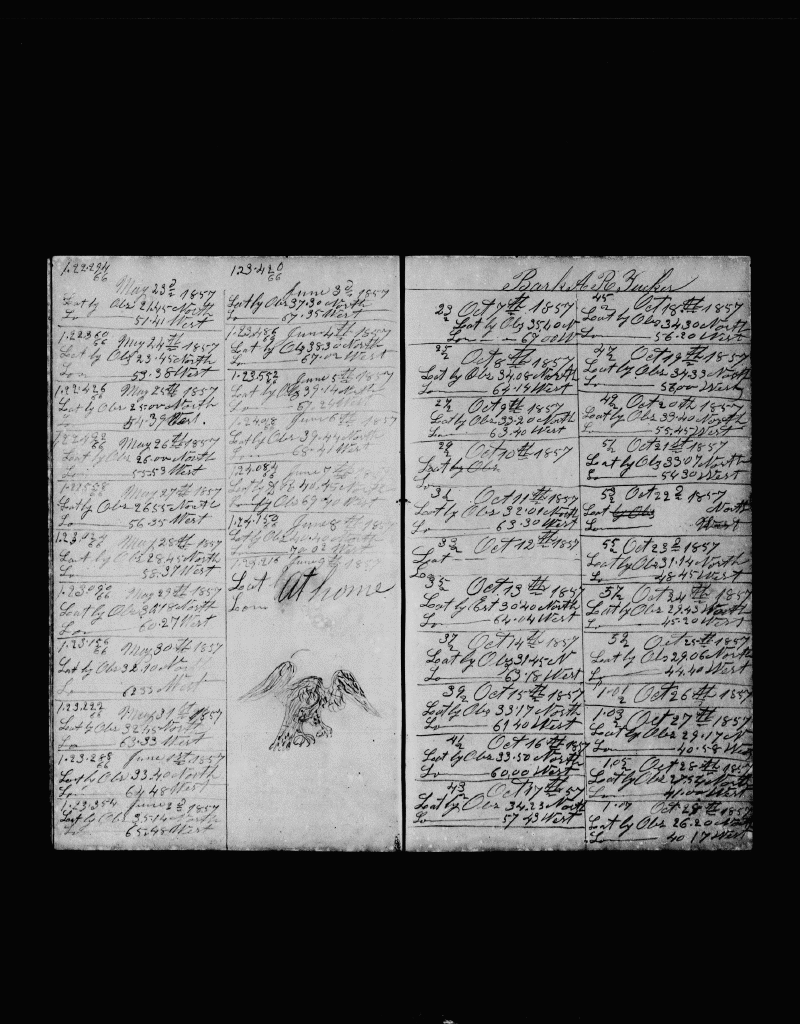 1.22.294
66
May 23d 1857
Lat by Obs 21.45 North
Lo 57.41 West
1.22.360
66
May 24th 1857
Lat by Obs 23.45 North
Lon 57.38 West
1.22.426
66
May 25th 1857
Lat by Obs 25.00 North
54.37 West.
1.22.492
66
May 26th 1857
Lat by Obs 26.00 North
Lo 55.53 West
1.22.558
66
May 27th 1857
Lat by Obs 26.55 North
Lo 56.35 West
66
May 28th 1857
Lat by Obs 28.45 North
Lo 58.37 West
1.23.090
66
May 29th 1857
Lat by Obs North
Lo 60.27 West
1.23.156
66
May 30th 1857
Lat by Obs 32.10 North
Lo West
1.23.222
66
May 31st 1857
Lat by Obs 32.45 North
Lo 63.33 West
1.23.288
66
June 1st 1857
Lat by Obs 33.40 North
Lo 64.48 West
1.23.354
June 2d 1857
Lat by Obs 35.14 North
Lo 65.48 West
1.23.420
66
June 3d 1857
Lat by Obs 37.30 North
Lo 67.35 West
1.23.486
66
June 4th 1857
Lat by Obs 38.30 North
Lo 67.00 West
1.23.552
66
June 5th 1857
Lat by Obs 39.14 North
Lo West
June 6th 1857
Lat by Obs 39.44 North
Lo 68.41 West
1.24.084
66
June 7th 1857
Lat by Obs 40.45 North
1.24.150
66
June 8th 1857
Lat by Obs 40.40 North
Lo 70.02 West
1.24.216
June 9th 1857
Lat At home
Lon
Bark A. R. Tucker
23 Oct 7th 1857
2
Lat by Obs 35.40 N
Lo 67.00 W
25
2
Oct 8th 1857
Lat by Obs 34.08 North
Lo 64.14 West
27
2
Oct 9th 1857
Lat by Obs 33.20 North
Lo 63.40 West
29
2
Oct 10th 1857
Lat by Obs
31
2
Oct 11th 1857
Lat by Obs 32.01 North
Lo 63.30 West
33
2
Oct 12th 1857
Lat
Lo
35
2
Oct 13th 1857
Lat by Est 30.40 North
Lo 64.04 West
37
2
Oct 14th 1857
Lat by Obs 31.45 N
Lo 63.18 West
39
2
Oct 15th 1857
Lat by Obs 33.17 North
Lo 61.40 West
41
2
Oct 16th 1857
Lat by Obs 33.50 North
Lo 60.00 West
43
Oct 17th 1857
Lat by Obs 34.23 North
Lo 57.43 West
45
2
Oct 18th 1857
Lat by Obs 34.30 North
Lo 56.20 West
47
2
Oct 19th 1857
Lat by Obs 34.33 North
Lo 58.00 West
49
2
Oct 20th 1857
Lat by Obs 33.40 North
Lo 55.45 West
51
2
Oct 21st 1857
Lat by Obs 33.07 North
Lo 54.30 West
53
2
Oct 22d 1857
Lat by Obs North
Lo West
55
2
Oct 23d 1857
Lat by Obs 31.14 North
Lo 48.45 West
57
2
Oct 24th 1857
Lat by Obs 29.43 North
Lo 45.20 West
59
2
Oct 25th 1857
Lat by Obs 29.06 North
Lo 44.40 West
1.01
2
Oct 26th 1857
1.03
2
Oct 27th 1857
Lat by Obs 29.17 N
Lo 40.58 West
1.05
2
Oct 28th 1857
Lat by Obs 27.52 North
Lo 41.00 West
1.07
Oct 1857
Lat by Obs 26.20 North
Lo 40.17 West